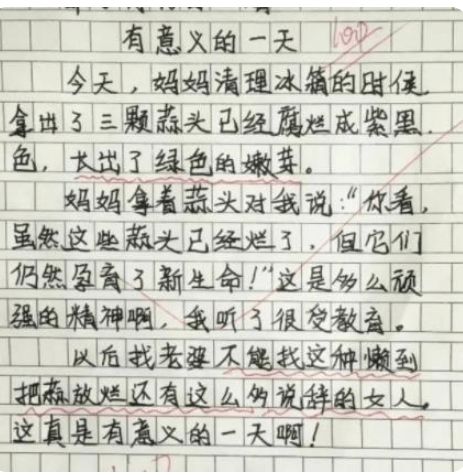 有意义的一天
100
今天，妈妈清理冰箱的时候
拿出了三颗蒜头已经腐烂成紫黑
色，长出了绿色的嫩芽。
妈妈拿着蒜头对我说：“你看，
虽然这些蒜头已经烂了，但它们
仍然孕育了新生命！”这是多么顽
强的精神啊，我听了很受教育。
以后找老婆不能找这种懒到
把蒜放烂还有这么多说辞的女人。
这真是有意义的一天啊！